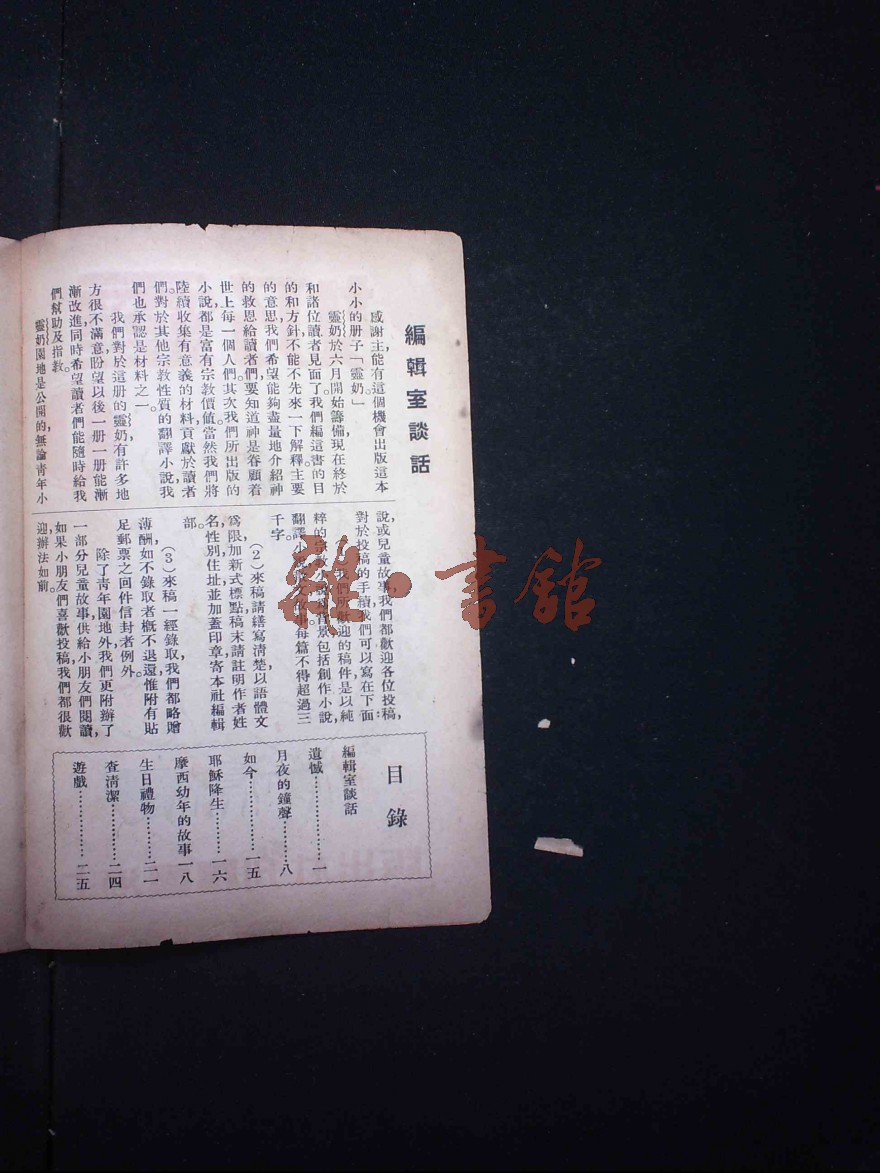 編輯室談話
感謝主能有這個機會出版這本
小小的册子「靈奶」
靈奶於六月開始籌備,現在終於
和諸位讀者見面了。我們編這書的目
的和方針不能不先來一下解釋。主要
的意思我們希望能夠盡量地介紹神
的救恩給讀者們,要知道神是眷顧着
世上每一個人們。其次我們所出版的
小說,都是富有宗教價値。當然我們將
陸續收集有意義的材料,貢獻於讀者
們。對於其他宗教性質的翻譯小說,我
們也承認是材料之一。
我們對於這册的靈奶,有許多地
方很不滿意,盼望以後一册一册能漸
漸改進,同時希望讀者們能隨時給我
們幫助及指教。
靈奶園地是公開的,無論青年小
說,或兒童故事,我們都歡迎各位投稿,
對於投稿的手續,我們可以寫在下面:
我們所歡迎的稿件是以純
粹的宗教 背景包括創作小說,
翻譯小說 故事,每篇不得超過三
千字。
(2)來稿請繕寫清楚,以語體文
爲限,加新式標點,稿末請註明作者姓
名,性別,住址並加蓋印章,寄本社編輯
部。
(3)來稿一經錄取,我們都略贈
薄酬,如不錄取者槪不退還,惟附有貼
足郵票之回件信封者例外。
除了青年園地外,我們更附辦了
一部分兒童故事,供給小朋友們閱讀,
如果小朋友們喜歡投稿,我們都很歡
迎,辦法如前。
目錄
編輯室談話
遺憾…………一
月夜的鐘聲……八
如今…………一五
耶穌降生……一六
摩西幼年的故事一八
生日禮物……二一
查清潔………二四
遊戲…………二五
雜·書館